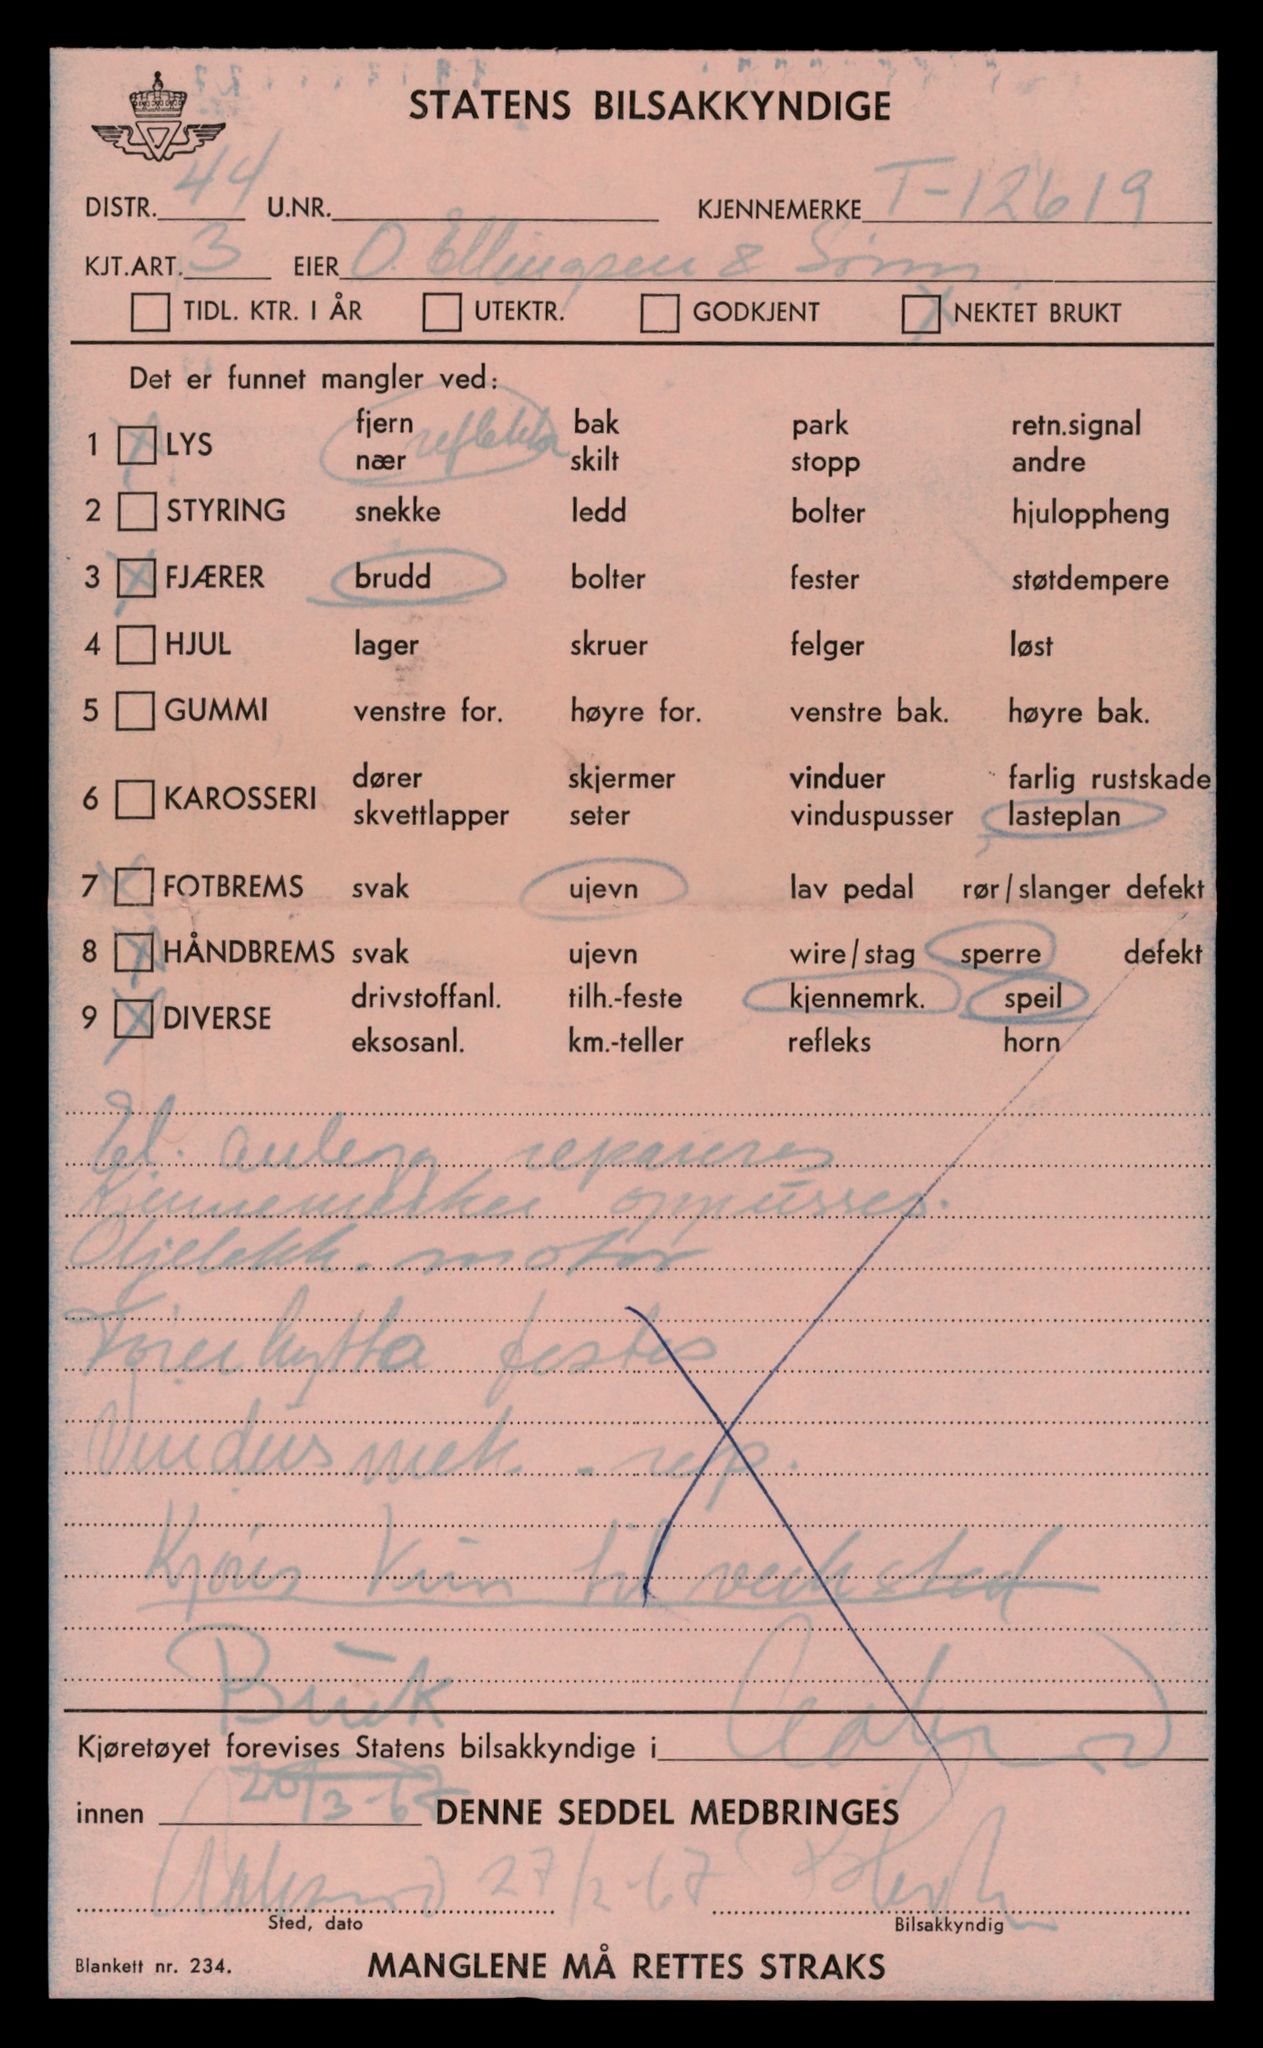 STATENS BILSAKKYNDIGE
DISTR. 44 U.NR. KJENNEMERKE T-12619
KJT.ART. 3 EIER O. Ellingsen & Sønn
TIDL. KTR. I ÅR UTEKTR. GODKJENT X NEKTET BRUKT
Det er funnet mangler ved:
1 X LYS fjern bak park retn.signal
reflektor
nær skilt stopp andre
2 STYRING snekke ledd bolter hjuloppheng
3 X FJÆRER brudd bolter fester støtdempere
4 HJUL lager skruer felger løst
5 GUMMI venstre for. høyre for. venstre bak. høyre bak.
6 KAROSSERI dører skjermer vinduer farlig rustskade
skvettlapper seter vinduspusser lasteplan
7 X FOTBREMS svak ujevn lav pedal rør/slanger defekt
8 X HÅNDBREMS svak ujevn wire/stag sperre defekt
9 X DIVERSE drivstoffanl. tilh.-feste kjennemrk. speil
eksosanl. km.-teller refleks horn
El. anlegg repareres
Kjennemerker oppusses.
Oljelekk. motor
Förerhytta festes
Vindusmek. rep.
Kjöres kun til verksted
Bruk
Kjøretøyet forevises Statens bilsakkyndige i
innen 20/3-67 DENNE SEDDEL MEDBRINGES
27/2-67
Sted, dato Bilsakkyndig
Blankett nr. 234. MANGLENE MÅ RETTES STRAKS